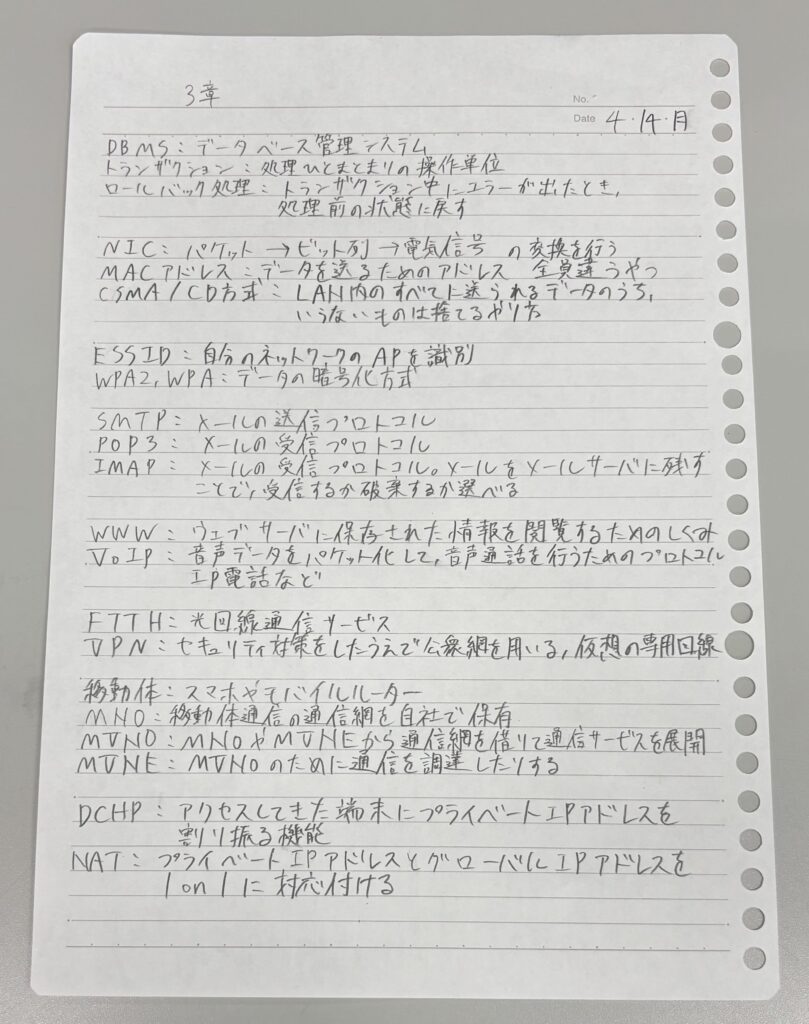 3章
No.
Date 4・14・月
DBMS：データベース管理システム
トランザクション：処理ひとまとまりの操作単位
ロールバック処理：トランザクション中にエラーが出たとき，
処理前の状態に戻す
NIC：パケット→ビット列→電気信号 の変換を行う
MACアドレス：データを送るためのアドレス 全員違うやつ
CSMA/CD方式：LAN内のすべてに送られるデータのうち，
いらないものは捨てるやり方
ESSID：自分のネットワークのAPを識別
WPA2，WPA：データの暗号化方式
SMTP：メールの送信プロトコル
POP3：メールの受信プロトコル
IMAP：メールの受信プロトコル。メールをメールサーバに残す
ことで，受信するか破棄するか選べる
WWW：ウェブサーバに保存された情報を閲覧するためのしくみ
VoIP：音声データをパケット化して，音声通話を行うためのプロトコル
IP電話など
FTTH：光回線通信サービス
VPN：セキュリティ対策をしたうえで公衆網を用いる，仮想の専用回線
移動体：スマホやモバイルルーター
MNO：移動体通信の通信網を自社で保有
MVNO：MNOやMVNEから通信網を借りて通信サービスを展開
MVNE：MVNOのために通信を調達したりする
DCHP：アクセスしてきた端末にプライベートIPアドレスを
割り振る機能
NAT：プライベートIPアドレスとグローバルIPアドレスを
1 on 1に対応付ける